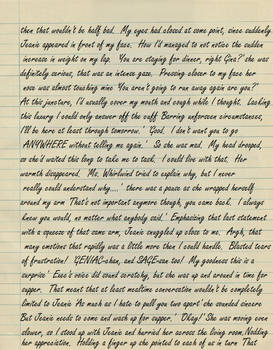 then that wouldn't be half bad. My eyes had closed at some point, since suddenly
Jeanie appeared in front of my face. How I'd managed to not notice the sudden
increase in weight on my lap. You are staying for dinner, right Gina?' she was
definitely serious, that was an intense gaze. Pressing closer to my face her
nose was almost touching mine You aren't going to run away again are you?'
At this juncture, I'd usually cover my mouth and cough while I thought. Lacking
this luxury I could only answer off the cuff Barring unforseen circumstances,
I'll be here at least through tomorrow.' 'Good. I don't want you to go
ANYWHERE without telling me again.' So she was mad. My head drooped,
so she'd waited this long to take me to task. I could live with that. Her
warmth disappeared. Ms. Whirlwind tried to explain why, but I never
really could understand why....' there was a pause as she wrapped herself
around my arm That's not important anymore though, you came back. I always
knew you would, no matter what anybody said.' Emphasizing that last statement
with a squeeze of that same arm, Jeanie snuggled up close to me. Argh, that
many emotions that rapidly was a little more then I could handle. Blasted tears
of frustration! 'GENIAC-chan, and SAGE-san too! My goodness this is a
surprise' Ewa's voice did sound scratchy, but she was up and around in time for
supper. That meant that at least mealtime conversation wouldn't be completely
limited to Jeanie 'As much as I hate to pull you two apart' she sounded sincere
But Jeanie needs to come and wash up for supper.' 'Okay!' She was moving even
slower, so I stood up with Jeanie and hurried her across the living room. Nodding
her appreciation. Holding a finger up she pointed to each of us in turn That